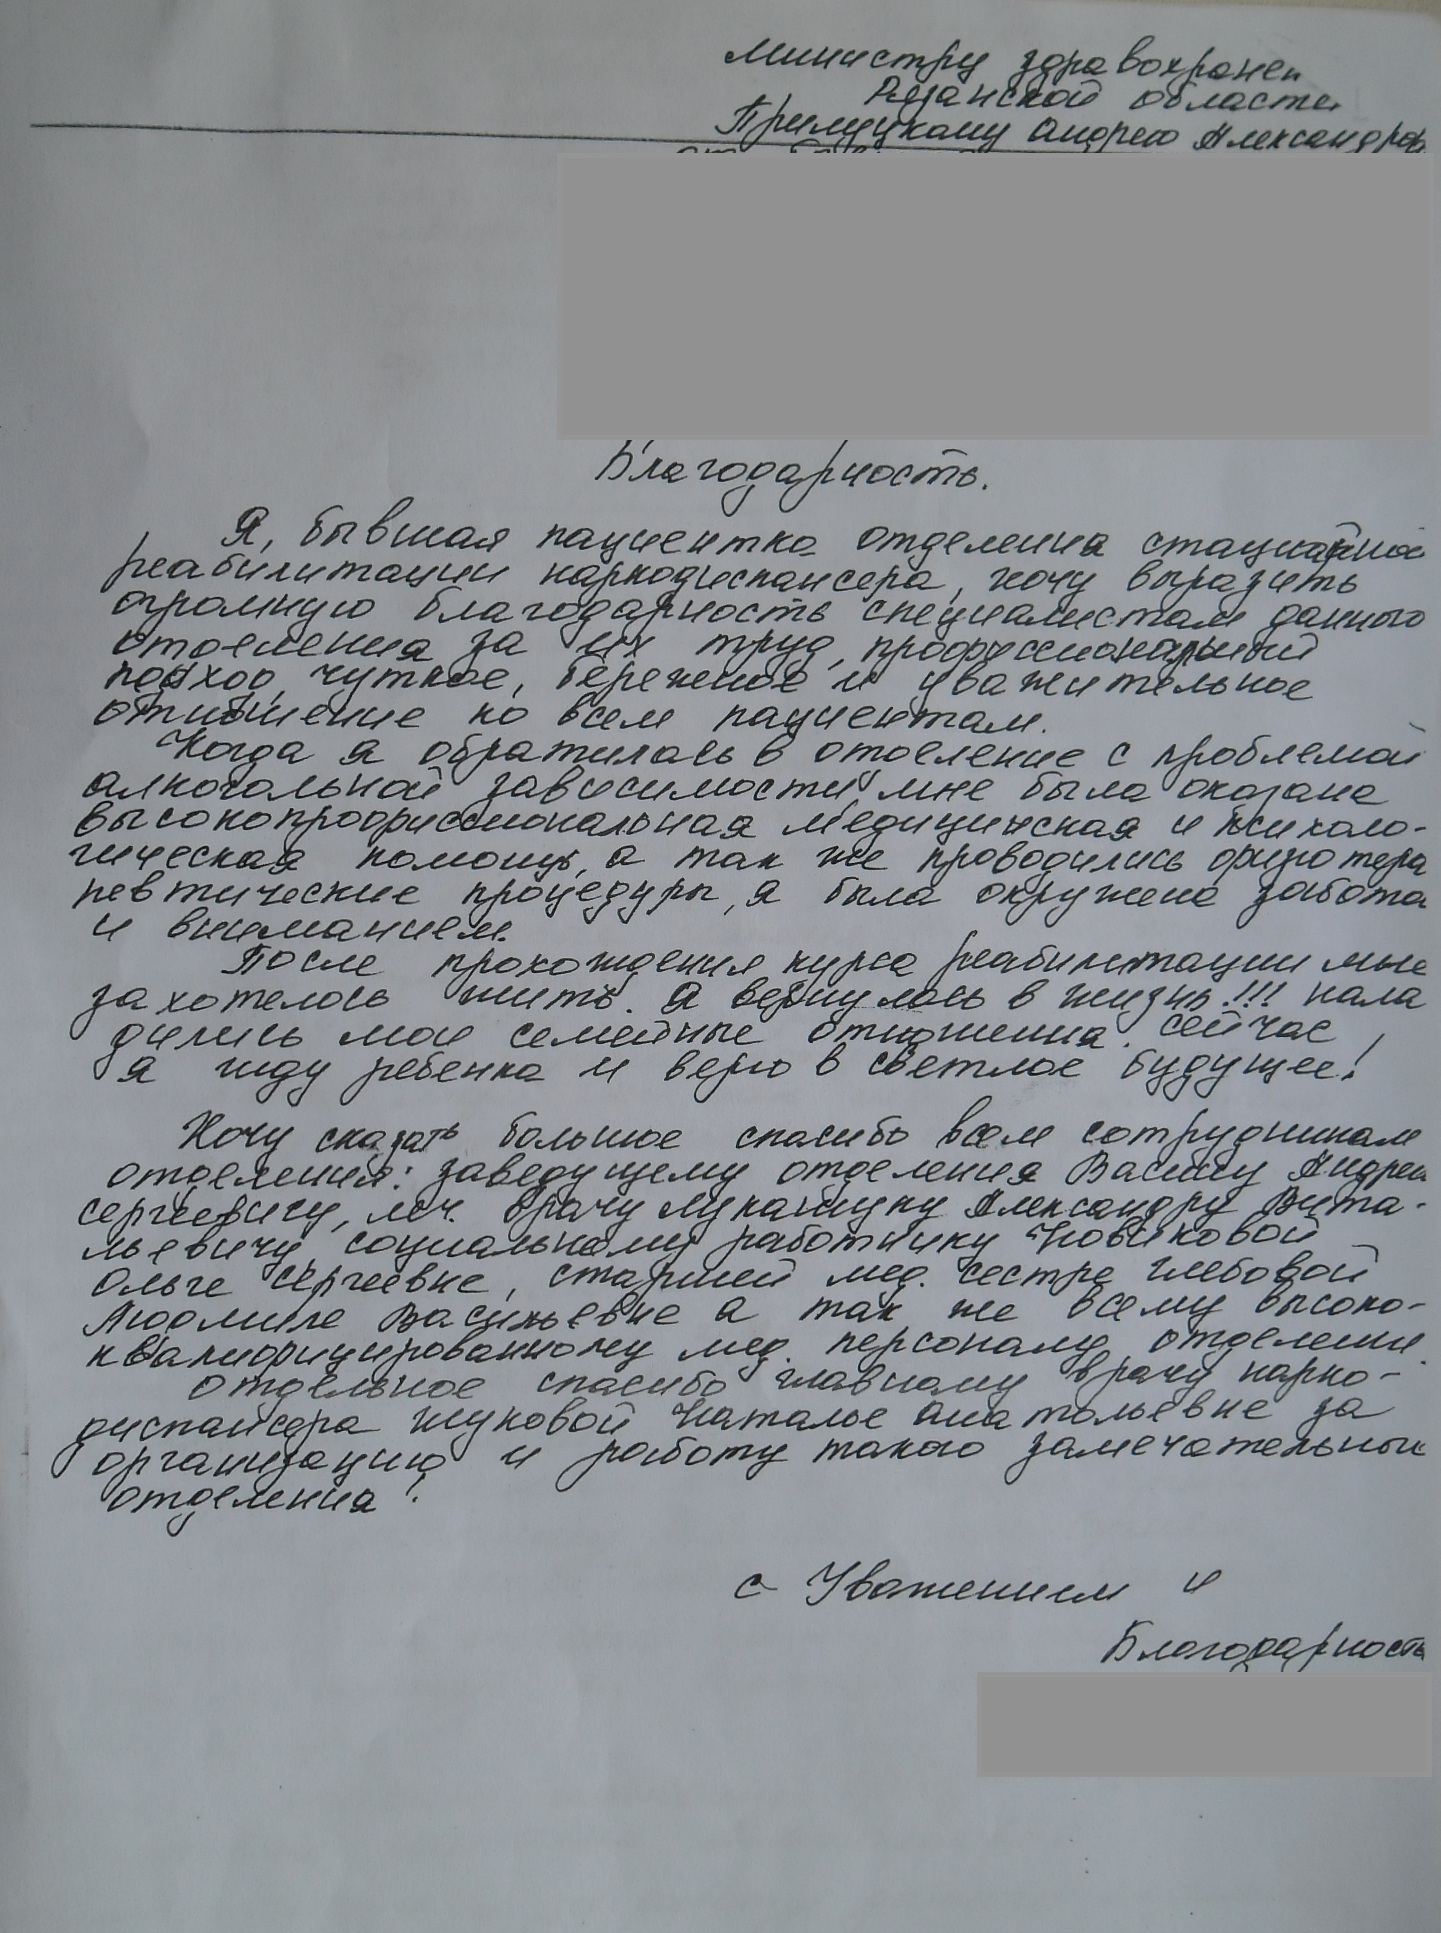 Министру здравохранен
Рязанской области
Прилуцкому Андрею Александров
от
Благодарность.
Я, бывшая пациентка отделения стационарной
реабилитации наркодиспансера, хочу выразить
огромную благодарность специалистам данного
отделения за их труд, профессиональный
подход, чуткое, бережное и уважительное
отношение ко всем пациентам.
Когда я обратилась в отделение с проблемой
алкогольной зависимости мне была оказана
высокопрофессиональная медицинская и психоло-
гическая помощь, а так же проводились физиотера
певтические процедуры, я была окружена забота
и вниманием.
После прохождения курса реабилитации мне
захотелось жить. Я вернулась в жизнь!!! Нала
дились мои семейные отношения. Сейчас
я жду ребенка и верю в светлое будущее!
Хочу сказать большое спасибо всем сотрудникам
отделения: заведущему отделения Андрею
Сергеевичу, леч. врачу Лукашуку Александру Вита-
льевичу, социальному работнику Новиковой
Ольге Сергеевне, старшей мед. сестре Глебовой
Людмиле Васильевне а так же всему высоко-
квалифицированному мед. персоналу отделения.
Отдельное спасибо главному врачу нарко-
диспансера Жуковой Наталье Анатольевне за
организацию и работу такого замечательный
отделения!
С Уважением и
Благодарность